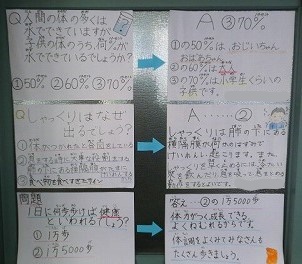 Q人間の体の多くは
水でできていますが
子供の体のうち、何%が
水でできているでしょうか?
①50% ②60% ③70%
A ③70%
①の50%は、おじいちゃん、
おばあちゃん。
②の60%は
③の70%は小学生くらいの
子供です。
Qしゃっくりはなぜ
出るでしょう?
①体がつかれたと合図をしている
③食べ物を食べすぎたサイン
A……②
しゃっくりは肺の下にある
横隔膜が何かのはずみで
けいれんし起こります。また、
問題
1日に何歩歩けば健康
といわれるでしょう?
①1万歩
②1万5000歩
答え…②の1万5000歩
体力がつく、成長できる、
よくねむれるからです。
体調をよくみてみなさんも
たくさん歩きましょう。